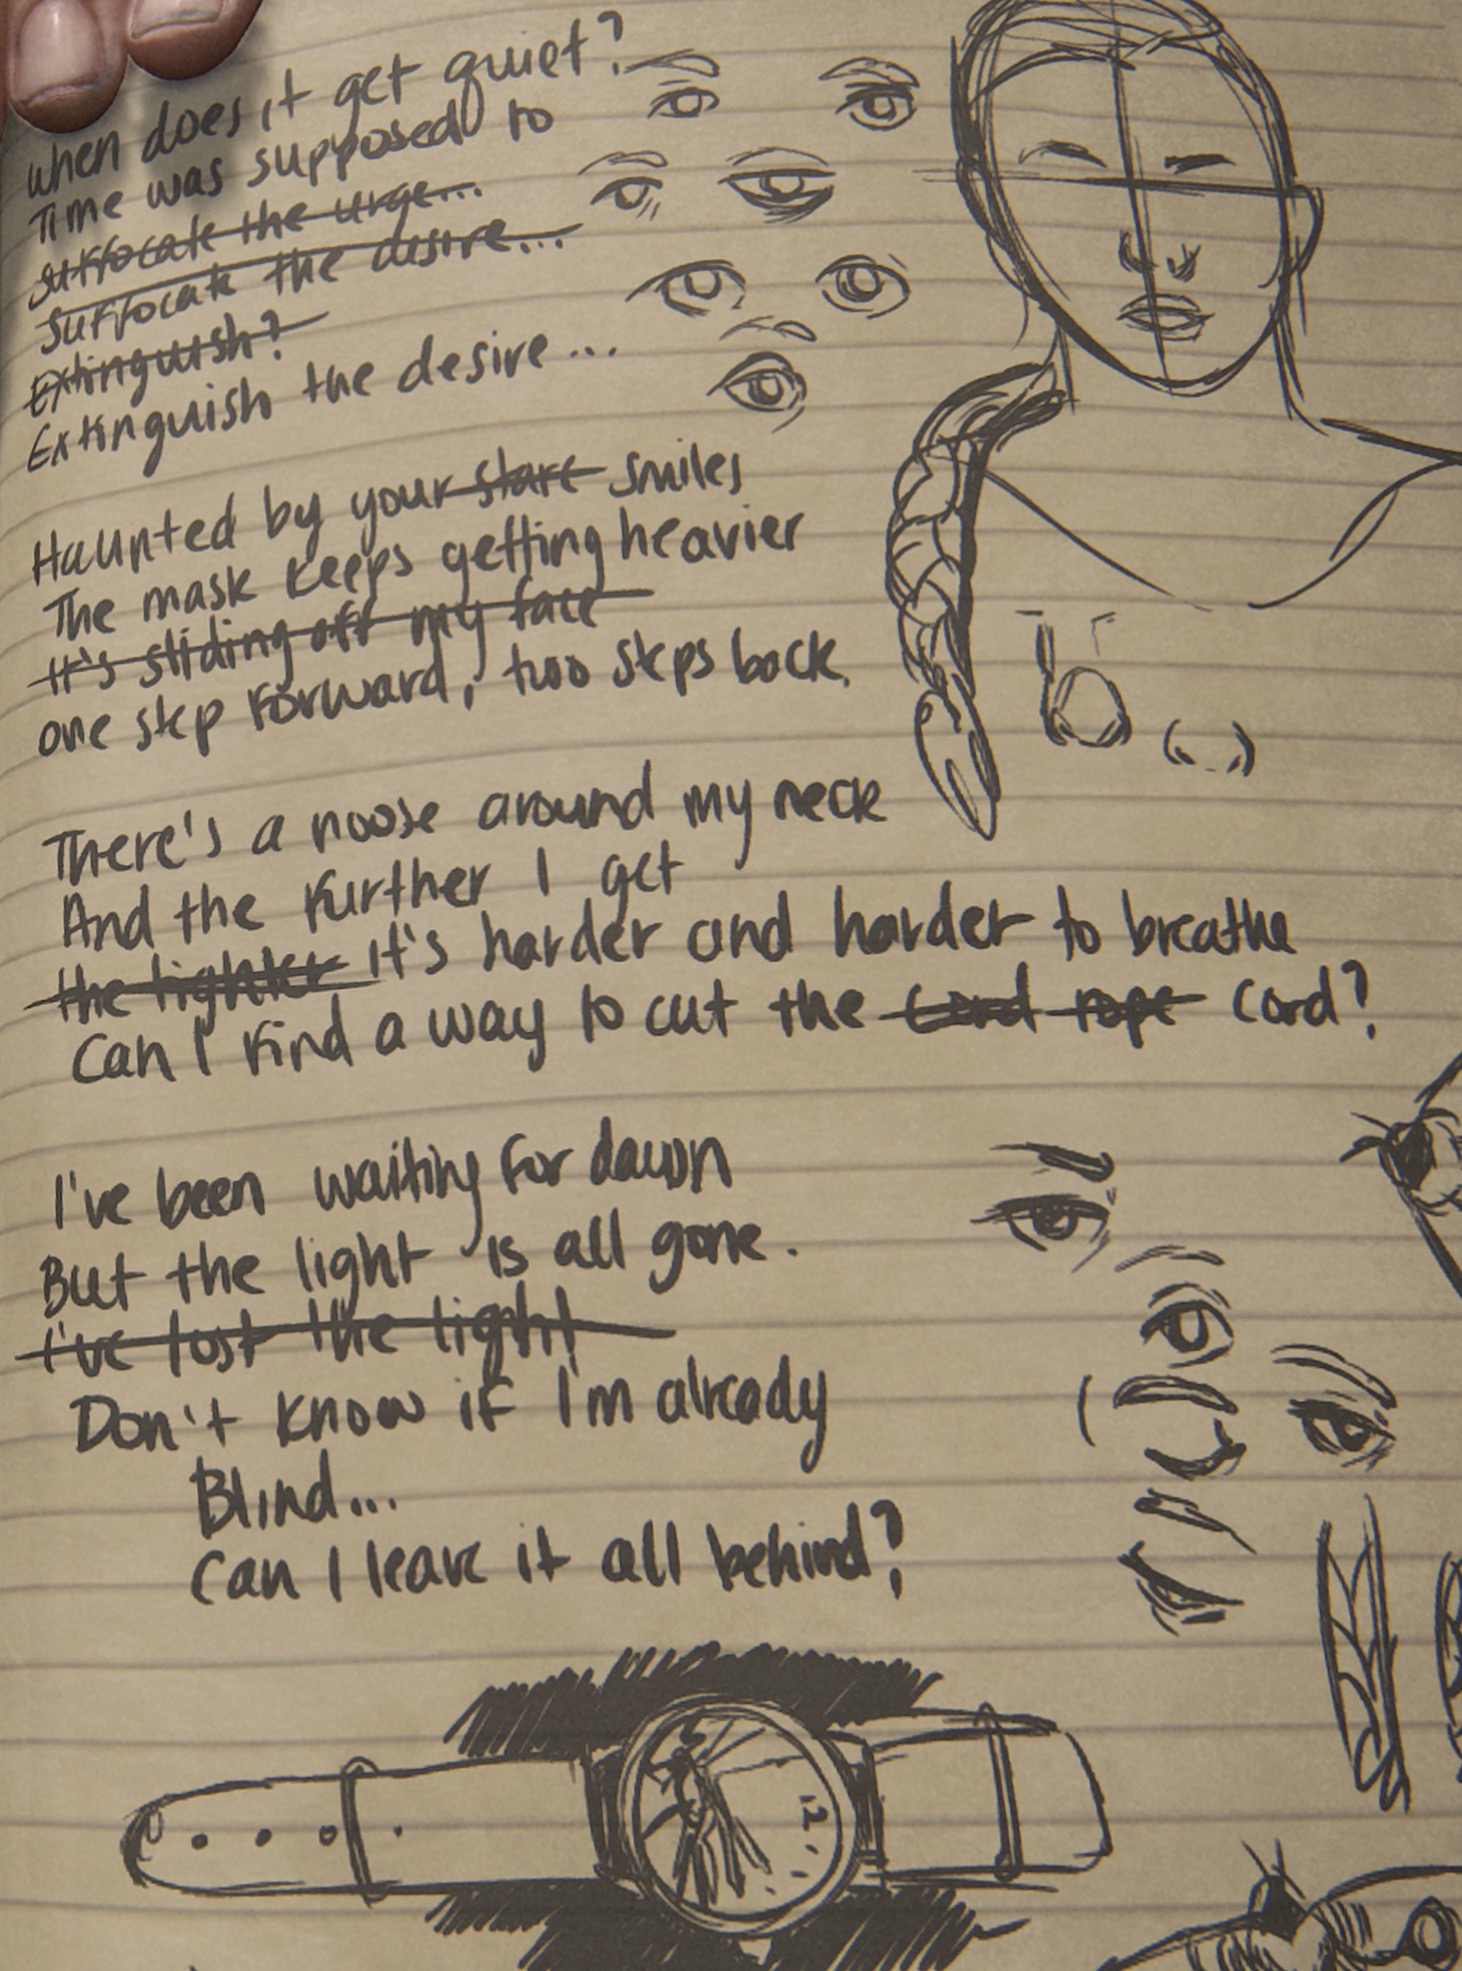 when does it get quiet?
Time was supposed to
suffocate the urge...
suffocate the desire...
Extinguish?
Extinguish the desire...
Haunted by your stare smiles
The mask keeps getting heavier
It's sliding off my face
one step forward, two steps back.
There's a noose around my neck
And the further I get
the tighter It's harder and harder to breathe
Can I find a way to cut the cord rope cord?
I've been waiting for dawn
But the light is all gone.
I've lost the light
Don't know if I'm already
Blind...
Can I leave it all behind?
12